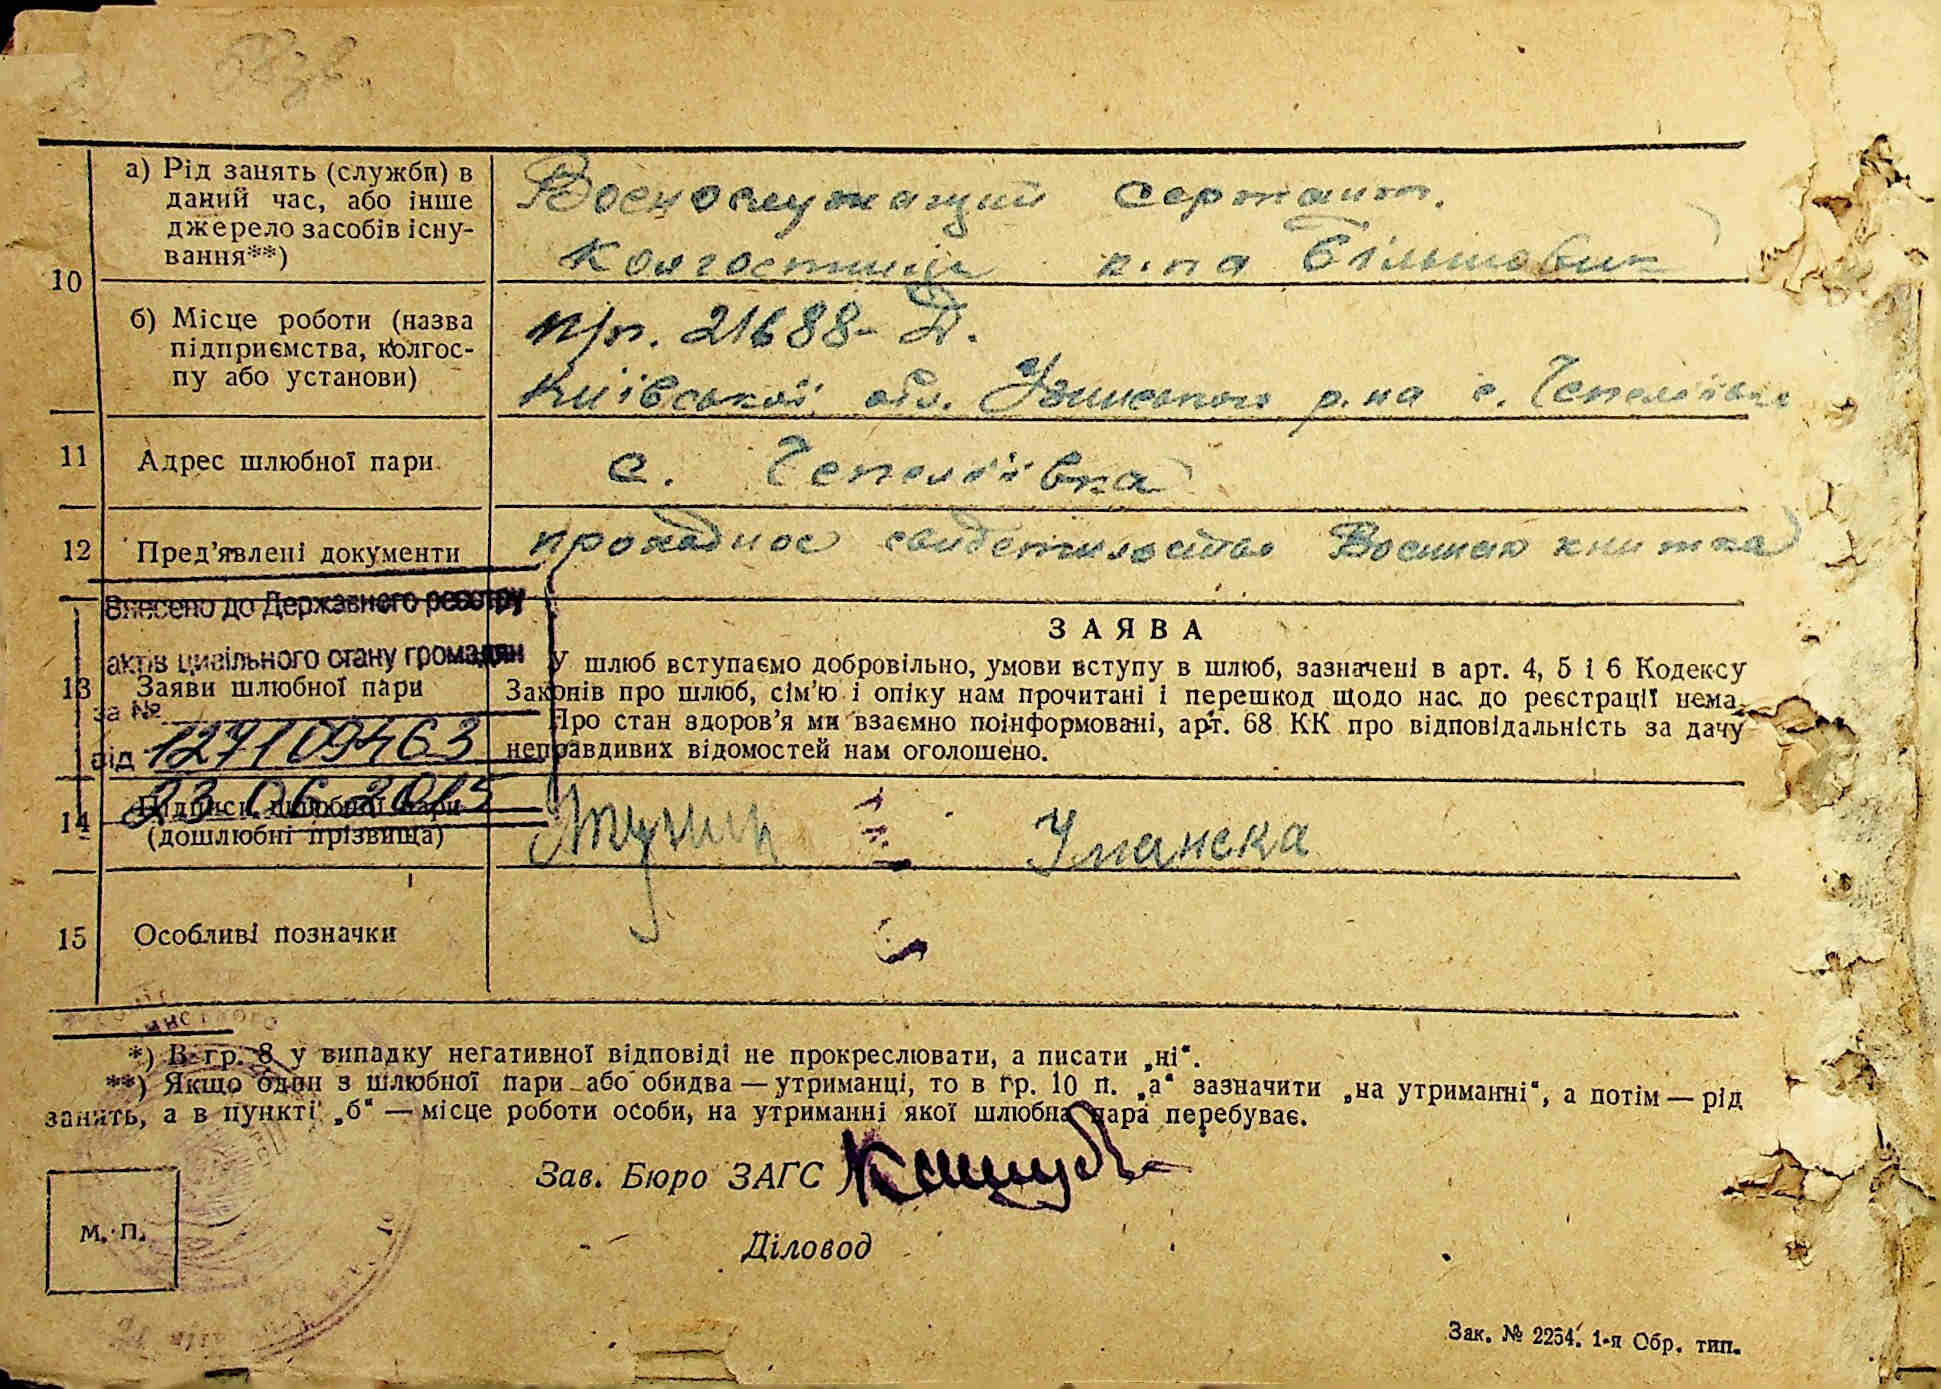 а) Рід занять (служби) в
даний час, або інше
джерело засобів існу-
вання**)
Военослужащий сержант.
Колгоспниця к-па Більшовик
10
б) Місце роботи (назва
підприємства, колгос-
пу або установи)
п/п. 21688-Д.
Київської обл. Узинського р.на с. Чепеліївка
11
Адрес шлюбної пари
с. Чепеліївка
12
Пред’явлені документи
проходное свидетильство Военная книжка
Внесено до Державного реєстру
актів цивільного стану громадян
за №
127109463
від
23.06.2015
13
Заяви шлюбної пари
ЗАЯВА
У шлюб вступаємо добровільно, умови вступу в шлюб, зазначені в арт. 4, 5 і 6 Кодексу
Законів про шлюб, сім’ю і опіку нам прочитані і перешкод щодо нас до реєстрації нема.
Про стан здоров’я ми взаємно поінформовані, арт. 68 КК про відповідальність за дачу
неправдивих відомостей нам оголошено.
14
Підписи шлюбної пари
(дошлюбні прізвища)
Уманска
15
Особливі позначки
*) В гр. 8 у випадку негативної відповіді не прокреслювати, а писати „ні“.
**) Якщо один з шлюбної пари або обидва — утриманці, то в гр. 10 п. „а“ зазначити „на утриманні“, а потім — рід
занять, а в пункті „б“ — місце роботи особи, на утриманні якої шлюбна пара перебуває.
Зав. Бюро ЗАГС
М. П.
Діловод
Зак. № 2254. 1-я Обр. тип.